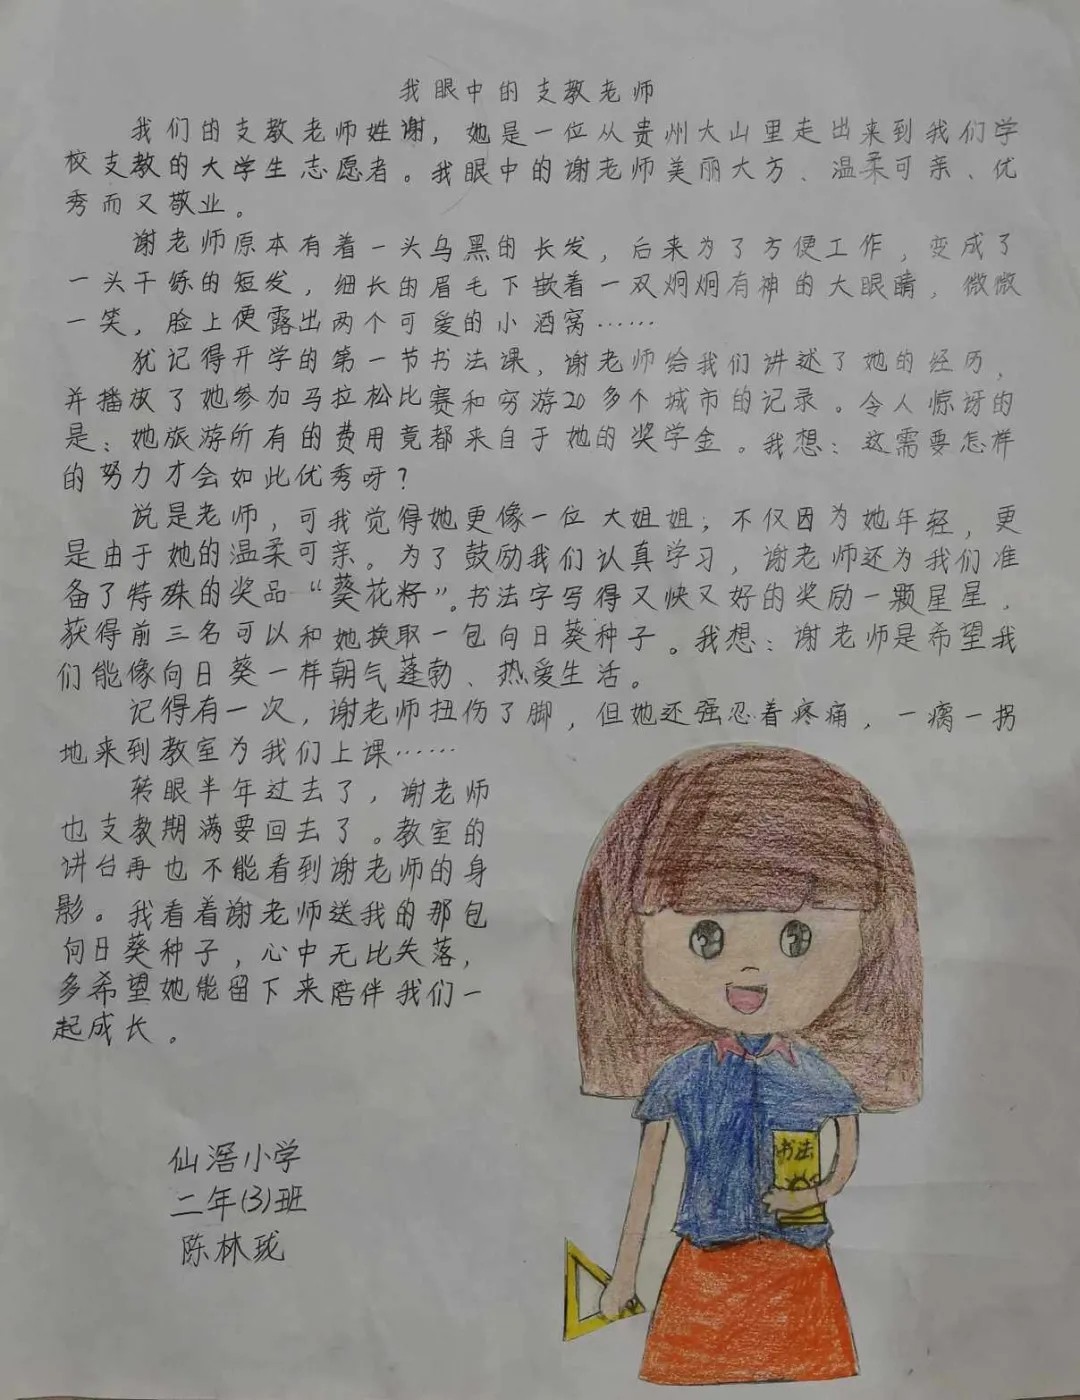 我眼中的支教老师
我们的支教老师姓谢，她是一位从贵州大山里走出来到我们学
校支教的大学生志愿者。我眼中的谢老师美丽大方、温柔可亲、优
秀而又敬业。
谢老师原本有着一头乌黑的长发，后来为了方便工作，变成了
一头干练的短发，细长的眉毛下嵌着一双炯炯有神的大眼睛，微微
一笑，脸上便露出两个可爱的小酒窝……
犹记得开学的第一节书法课，谢老师给我们讲述了她的经历，
并播放了她参加马拉松比赛和穷游20多个城市的记录。令人惊讶的
是：她旅游所有的费用竟都来自于她的奖学金。我想：这需要怎样
的努力才会如此优秀呀？
说是老师，可我觉得她更像一位大姐姐；不仅因为她年轻，更
是由于她的温柔可亲。为了鼓励我们认真学习，谢老师还为我们准
备了特殊的奖品“葵花籽”。书法字写得又快又好的奖励一颗星星，
获得前三名可以和她换取一包向日葵种子。我想：谢老师是希望我
们能像向日葵一样朝气蓬勃、热爱生活。
记得有一次，谢老师扭伤了脚，但她还强忍着疼痛，一瘸一拐
地来到教室为我们上课……
转眼半年过去了，谢老师
也支教期满要回去了。教室的
讲台再也不能看到谢老师的身
影。我看着谢老师送我的那包
向日葵种子，心中无比失落，
多希望她能留下来陪伴我们一
起成长。
书法
仙滘小学
二年(3)班
陈林珑